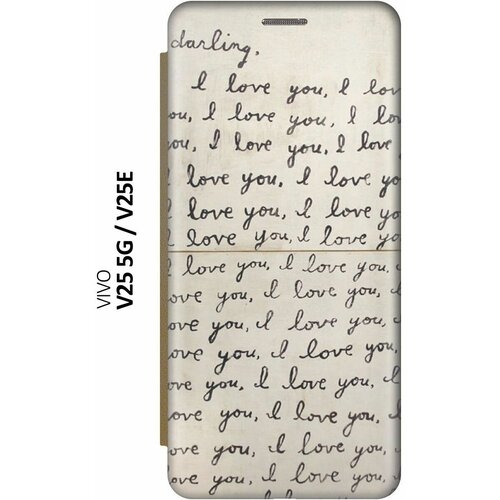 VIVO
V25 5G / V25E
darling,
I love you, I lov
ou, I love you, I lov
ou, I love you, I love
love you, I love yo
love you, I love yo
I love you, I love yo
I love you, I love you,
ove you, I love you,
ove you, I love you,
ove you, I love you,
ove you, I love you,
ove you, I love you,
ove you, I love you,
love you, I love you,